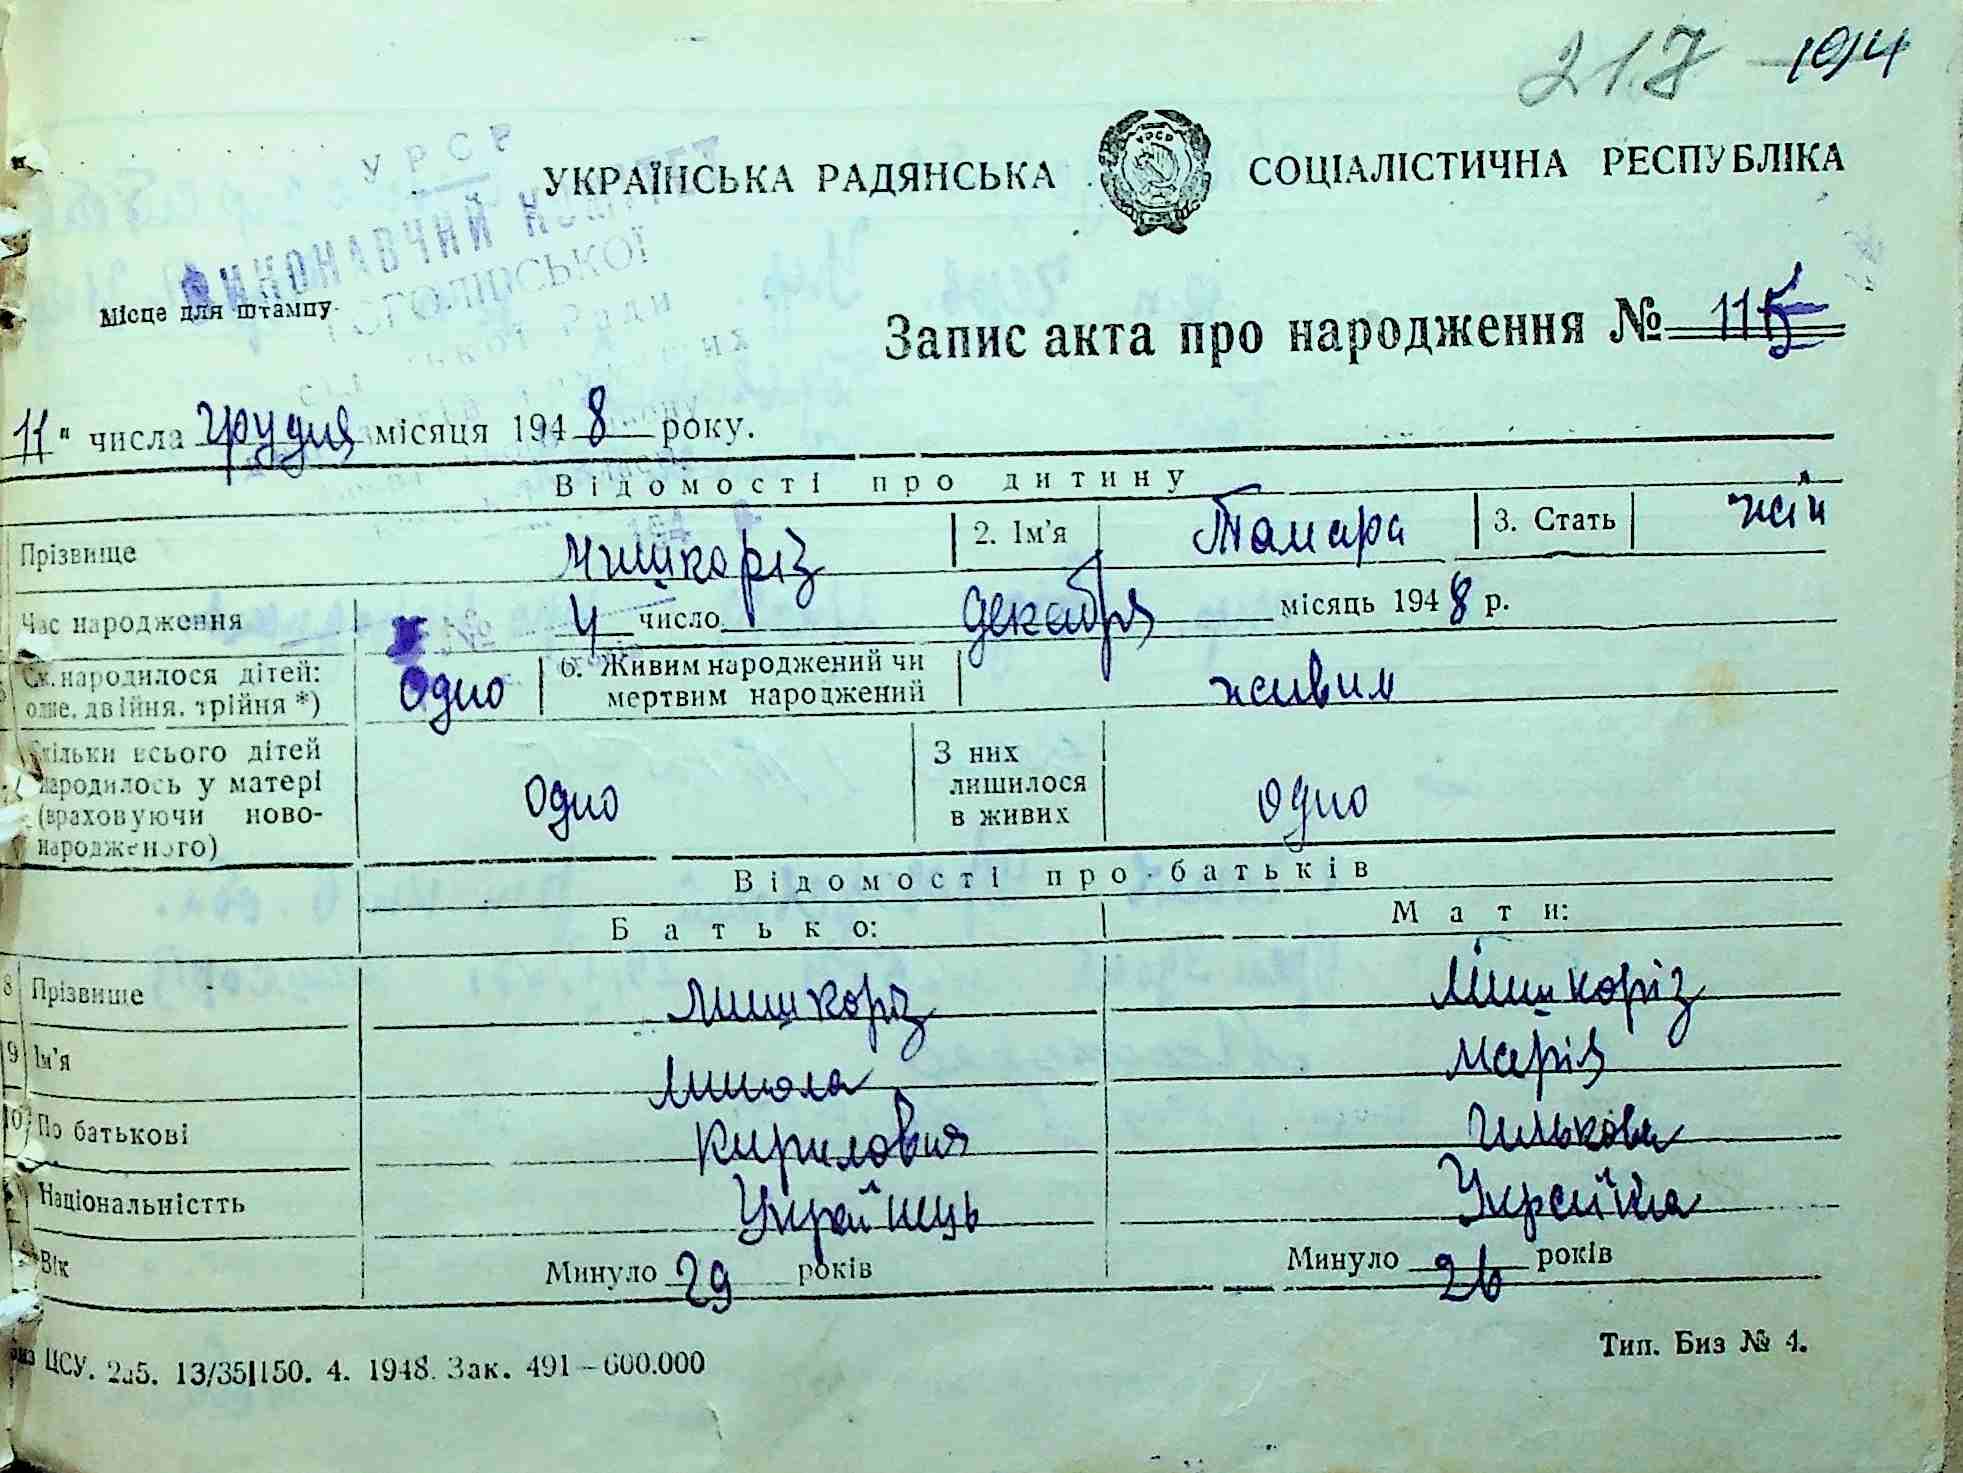 217 – 194
УКРАЇНСЬКА РАДЯНСЬКА СОЦІАЛІСТИЧНА РЕСПУБЛІКА
УРСР
ВИКОНАВЧИЙ КОМІТЕТ
ГОГОЛІВСЬКОЇ
Ради
Місце для штампу
Запис акта про народження № 115
11 " числа грудня місяця 1948 року.
Відомості про дитину
Прізвище Мишкоріз 2. Ім'я Тамара 3. Стать жін
Час народження 4 число декабря місяць 1948 р.
Ск. народилося дітей: одне, двійня, трійня *) Одно 6. Живим народжений чи мертвим народжений живим
Скільки всього дітей народилось у матері (враховуючи новонародженого) Одно З них лишилося в живих Одно
Відомості про батьків
Батько: Мати:
8 Прізвище Мишкоріз Мишкоріз
9 Ім'я Микола Марія
10 По батькові Кирилович
Національністть Українець Украінка
Вік Минуло 29 років Минуло 26 років
ЦСУ. 2а5. 13/35|150. 4. 1948. Зак. 491–600.000 Тип. Биз № 4.